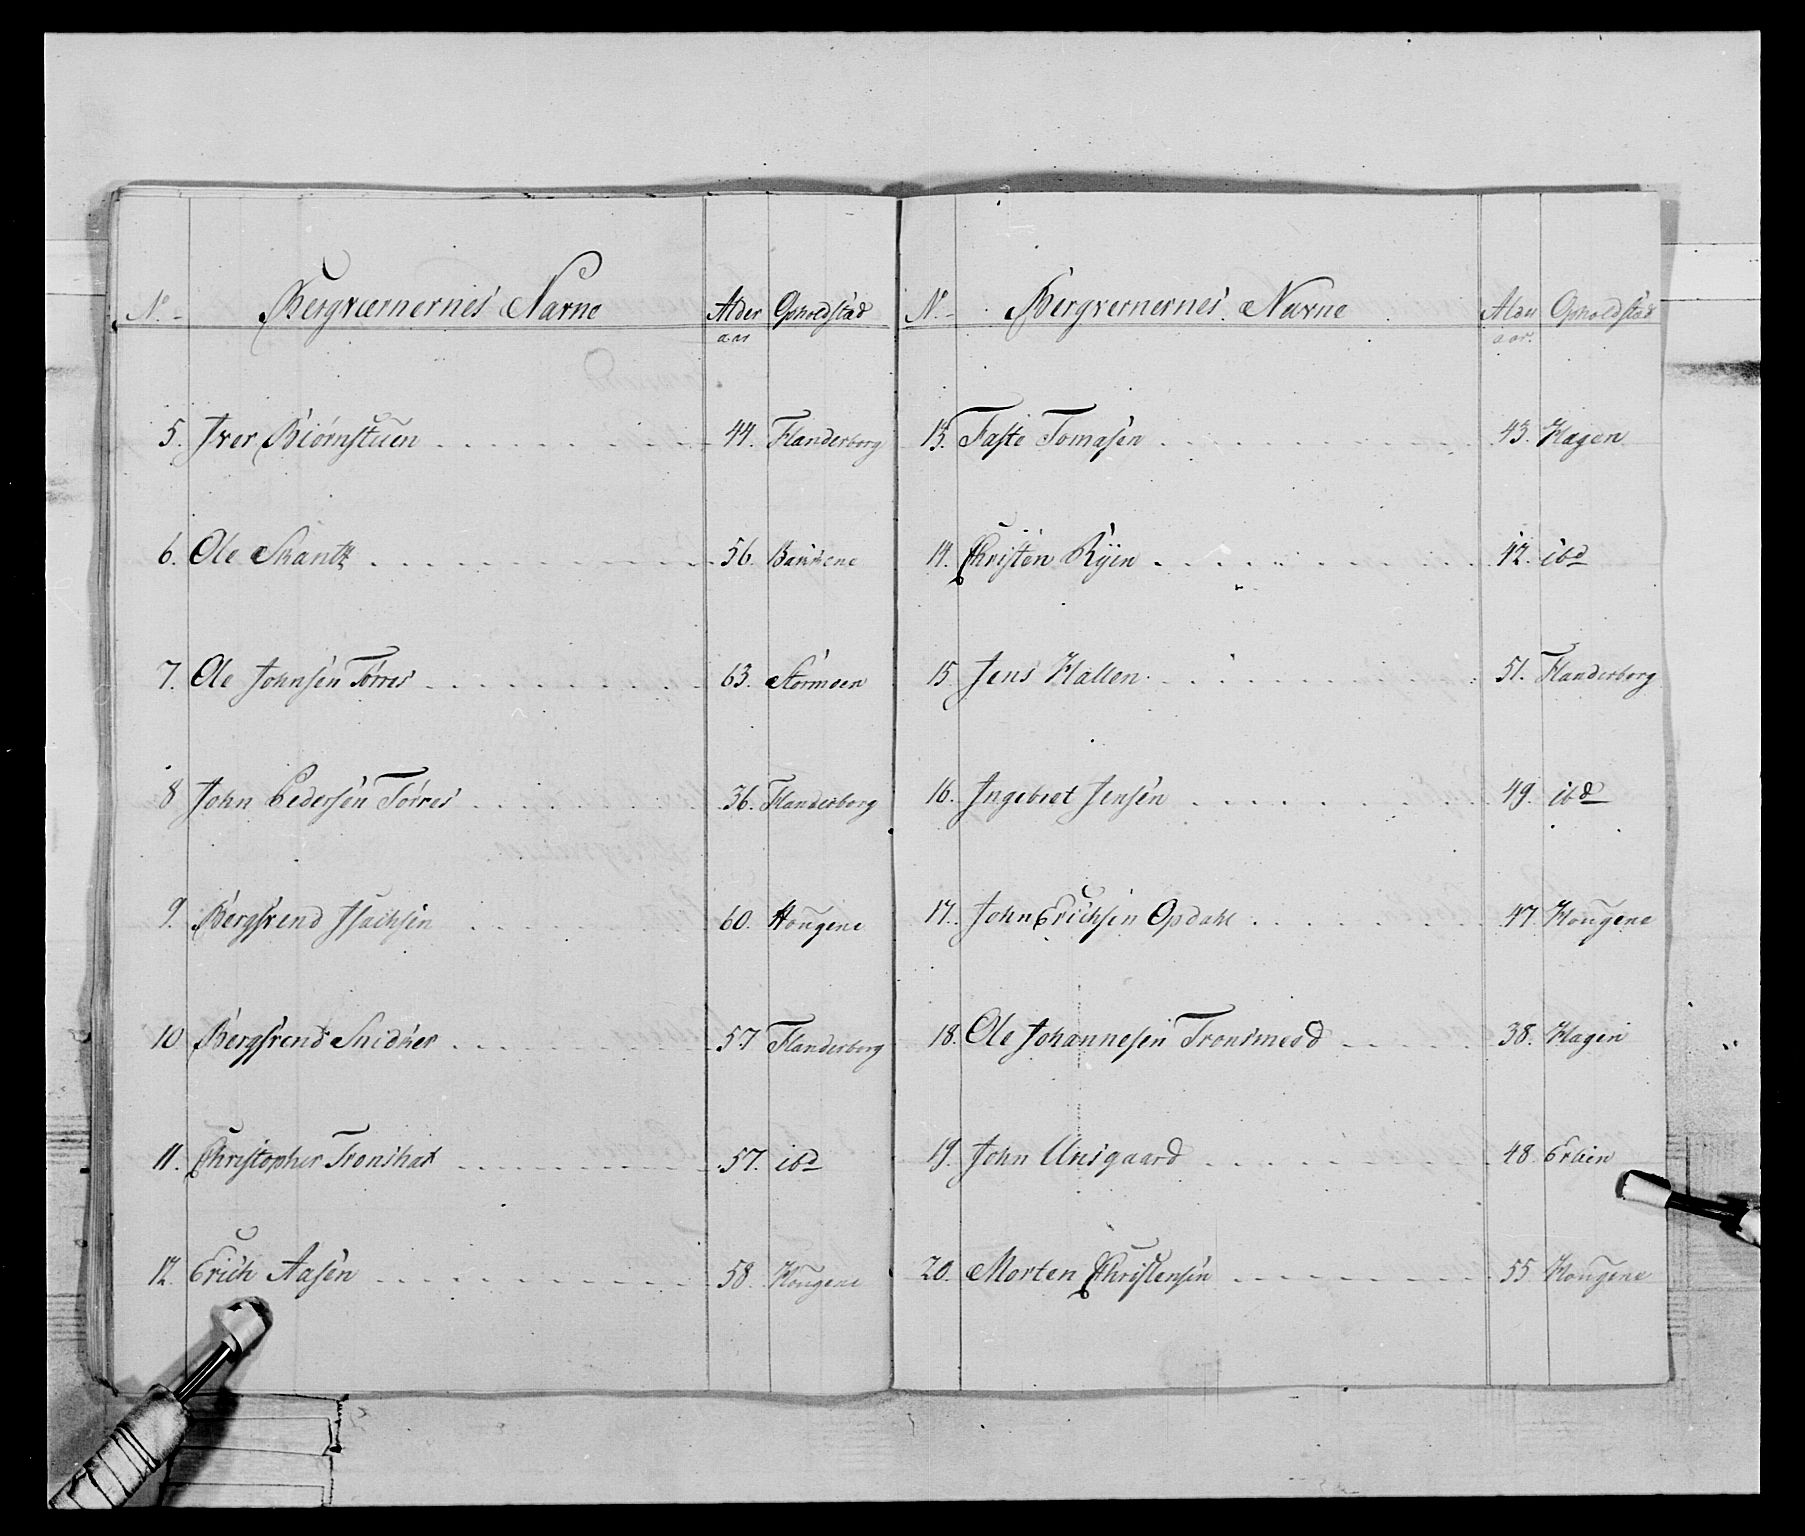 No. Bergværnernes Navne Alder Opholdstad
aar
5. Iver Biørnstuen 44. Flanderborg
6. Ole Skantz 56. Bakkene
7. Ole Johnsen Tørres 63. Stormoen
8 John Pedersen Tørres 36. Flanderborg
9. Bergsvend Isachsen 60. Hougene
10 Bergsvend Snidker 57 Flanderborg
11. Christopher Tronshat 57. ibd
12. Erich Aasen 58. Hougene
No. Bergvernernes Navne Alder Opholdstad
aar.
13. Faste Tomasen 43. Hagen
14. Christen Ryen 42. ibd
15. Jens Hallen 51. Flanderborg
16. Ingebret Jensen 49. ibd
17. John Erichsen Opdahl 47 Hougene
18. Ole Johannesen Tronsmeod 38. Hagen
19. John Unsgaard 48
20. Morten Christensen 55 Hougene